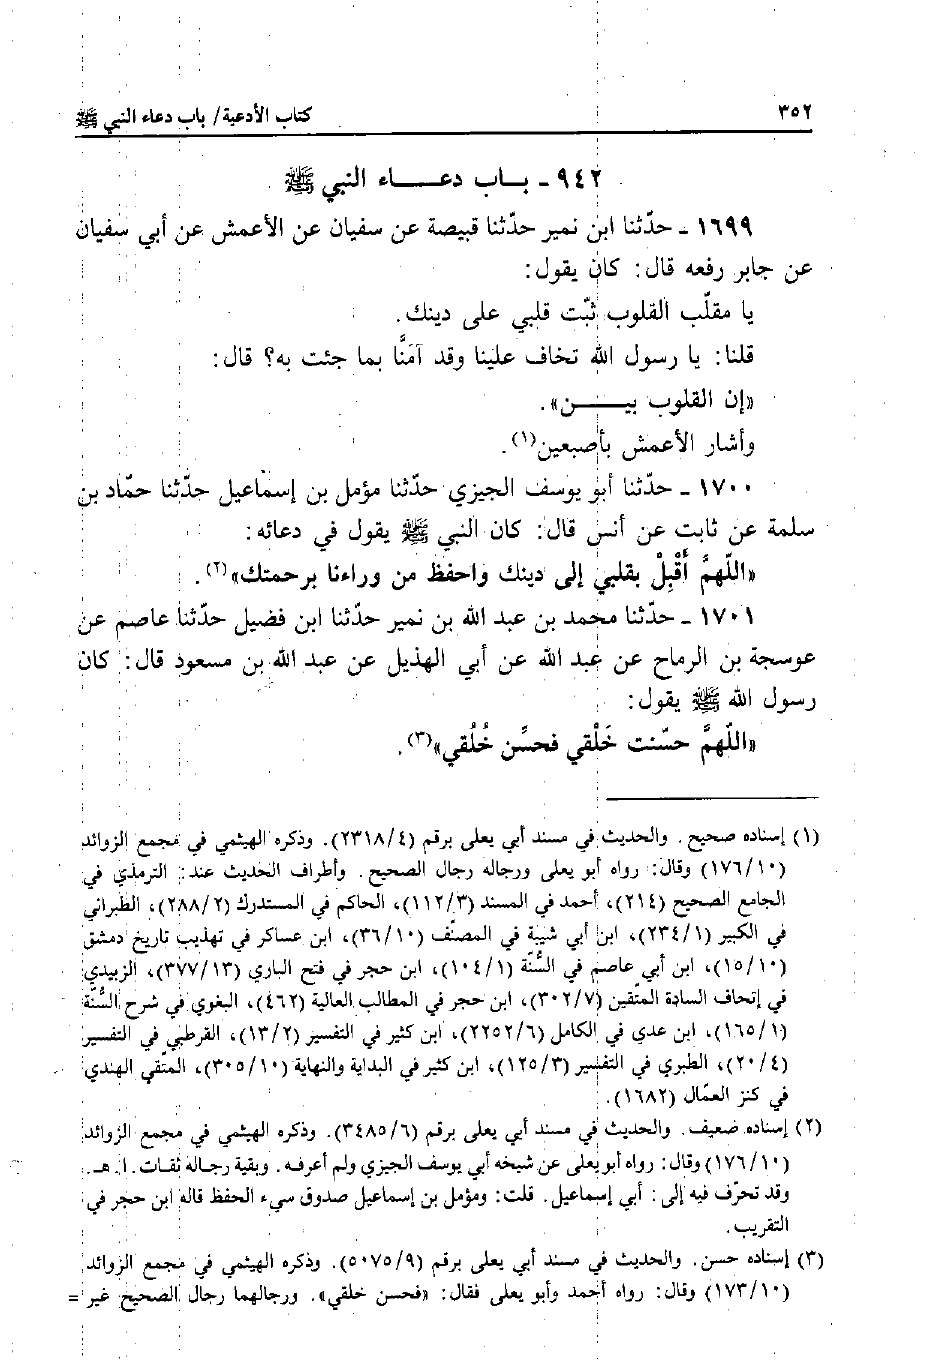 ٣٥٢ كتاب الأدعية/ باب دعاء النبي ﷺ
٩٤٢ ـ بـاب دعـــاء النبي ﷺ
١٦٩٩ ـ حدّثنا ابن نمير حدّثنا قبيصة عن سفيان عن الأعمش عن أبي سفيان
عن جابر رفعه قال: كان يقول:
يا مقلّب القلوب ثبّت قلبي على دينك.
قلنا: يا رسول الله تخاف علينا وقد آمَنَّا بما جئت به؟ قال:
«إن القلوب بيـــــن».
وأشار الأعمش بأصبعين(١).
١٧٠٠ ـ حدّثنا أبو يوسف الجيزي حدّثنا مؤمل بن إسماعيل حدّثنا حمّاد بن
سلمة عن ثابت عن أنس قال: كان النبي ﷺ يقول في دعائه:
«اللّهمَّ أَقْبِلْ بقلبي إلى دينك واحفظ من وراءنا برحمتك»(٢).
١٧٠١ ـ حدّثنا محمد بن عبد الله بن نمير حدّثنا ابن فضيل حدّثنا عاصم عن
عوسجة بن الرماح عن عبد الله عن أبي الهذيل عن عبد الله بن مسعود قال: كان
رسول الله ﷺ يقول:
«اللّهمَّ حسّنت خَلْقي فحسِّن خُلُقي»(٣).
(١) إسناده صحيح. والحديث في مسند أبي يعلى برقم (٢٣١٨/٤). وذكره الهيثمي في مجمع الزوائد
(١٧٦/١٠) وقال: رواه أبو يعلى ورجاله رجال الصحيح. وأطراف الحديث عند: الترمذي في
الجامع الصحيح (٢١٤)، أحمد في المسند (١١٢/٣)، الحاكم في المستدرك (٢٨٨/٢)، الطبراني
في الكبير (٢٣٤/١)، ابن أبي شيبة في المصنّف (٣٦/١٠)، ابن عساكر في تهذيب تاريخ دمشق
(١٥/١٠)، ابن أبي عاصم في السُّنّة (١٠٤/١)، ابن حجر في فتح الباري (٣٧٧/١٣)، الزبيدي
في إتحاف السادة المتّقين (٣٠٢/٧)، ابن حجر في المطالب العالية (٤٦٢)، البغوي في شرح السُّنّة
(١٦٥/١)، ابن عدي في الكامل (٢٢٥٢/٦)، ابن كثير في التفسير (١٣/٢)، القرطبي في التفسير
(٢٠/٤)، الطبري في التفسير (١٢٥/٣)، ابن كثير في البداية والنهاية (٣٠٥/١٠)، المتّقي الهندي
في كنز العمّال (١٦٨٢).
(٢) إسناده ضعيف. والحديث في مسند أبي يعلى برقم (٣٤٨٥/٦). وذكره الهيثمي في مجمع الزوائد
(١٧٦/١٠) وقال: رواه أبو يعلى عن شيخه أبي يوسف الجيزي ولم أعرفه. وبقية رجاله ثقات. ا. هـ.
وقد تحرّف فيه إلى: أبي إسماعيل. قلت: ومؤمل بن إسماعيل صدوق سيء الحفظ قاله ابن حجر في
التقريب.
(٣) إسناده حسن. والحديث في مسند أبي يعلى برقم (٥٠٧٥/٩). وذكره الهيثمي في مجمع الزوائد
(١٧٣/١٠) وقال: رواه أحمد وأبو يعلى فقال: «فحسن خلقي». ورجالهما رجال الصحيح غير =